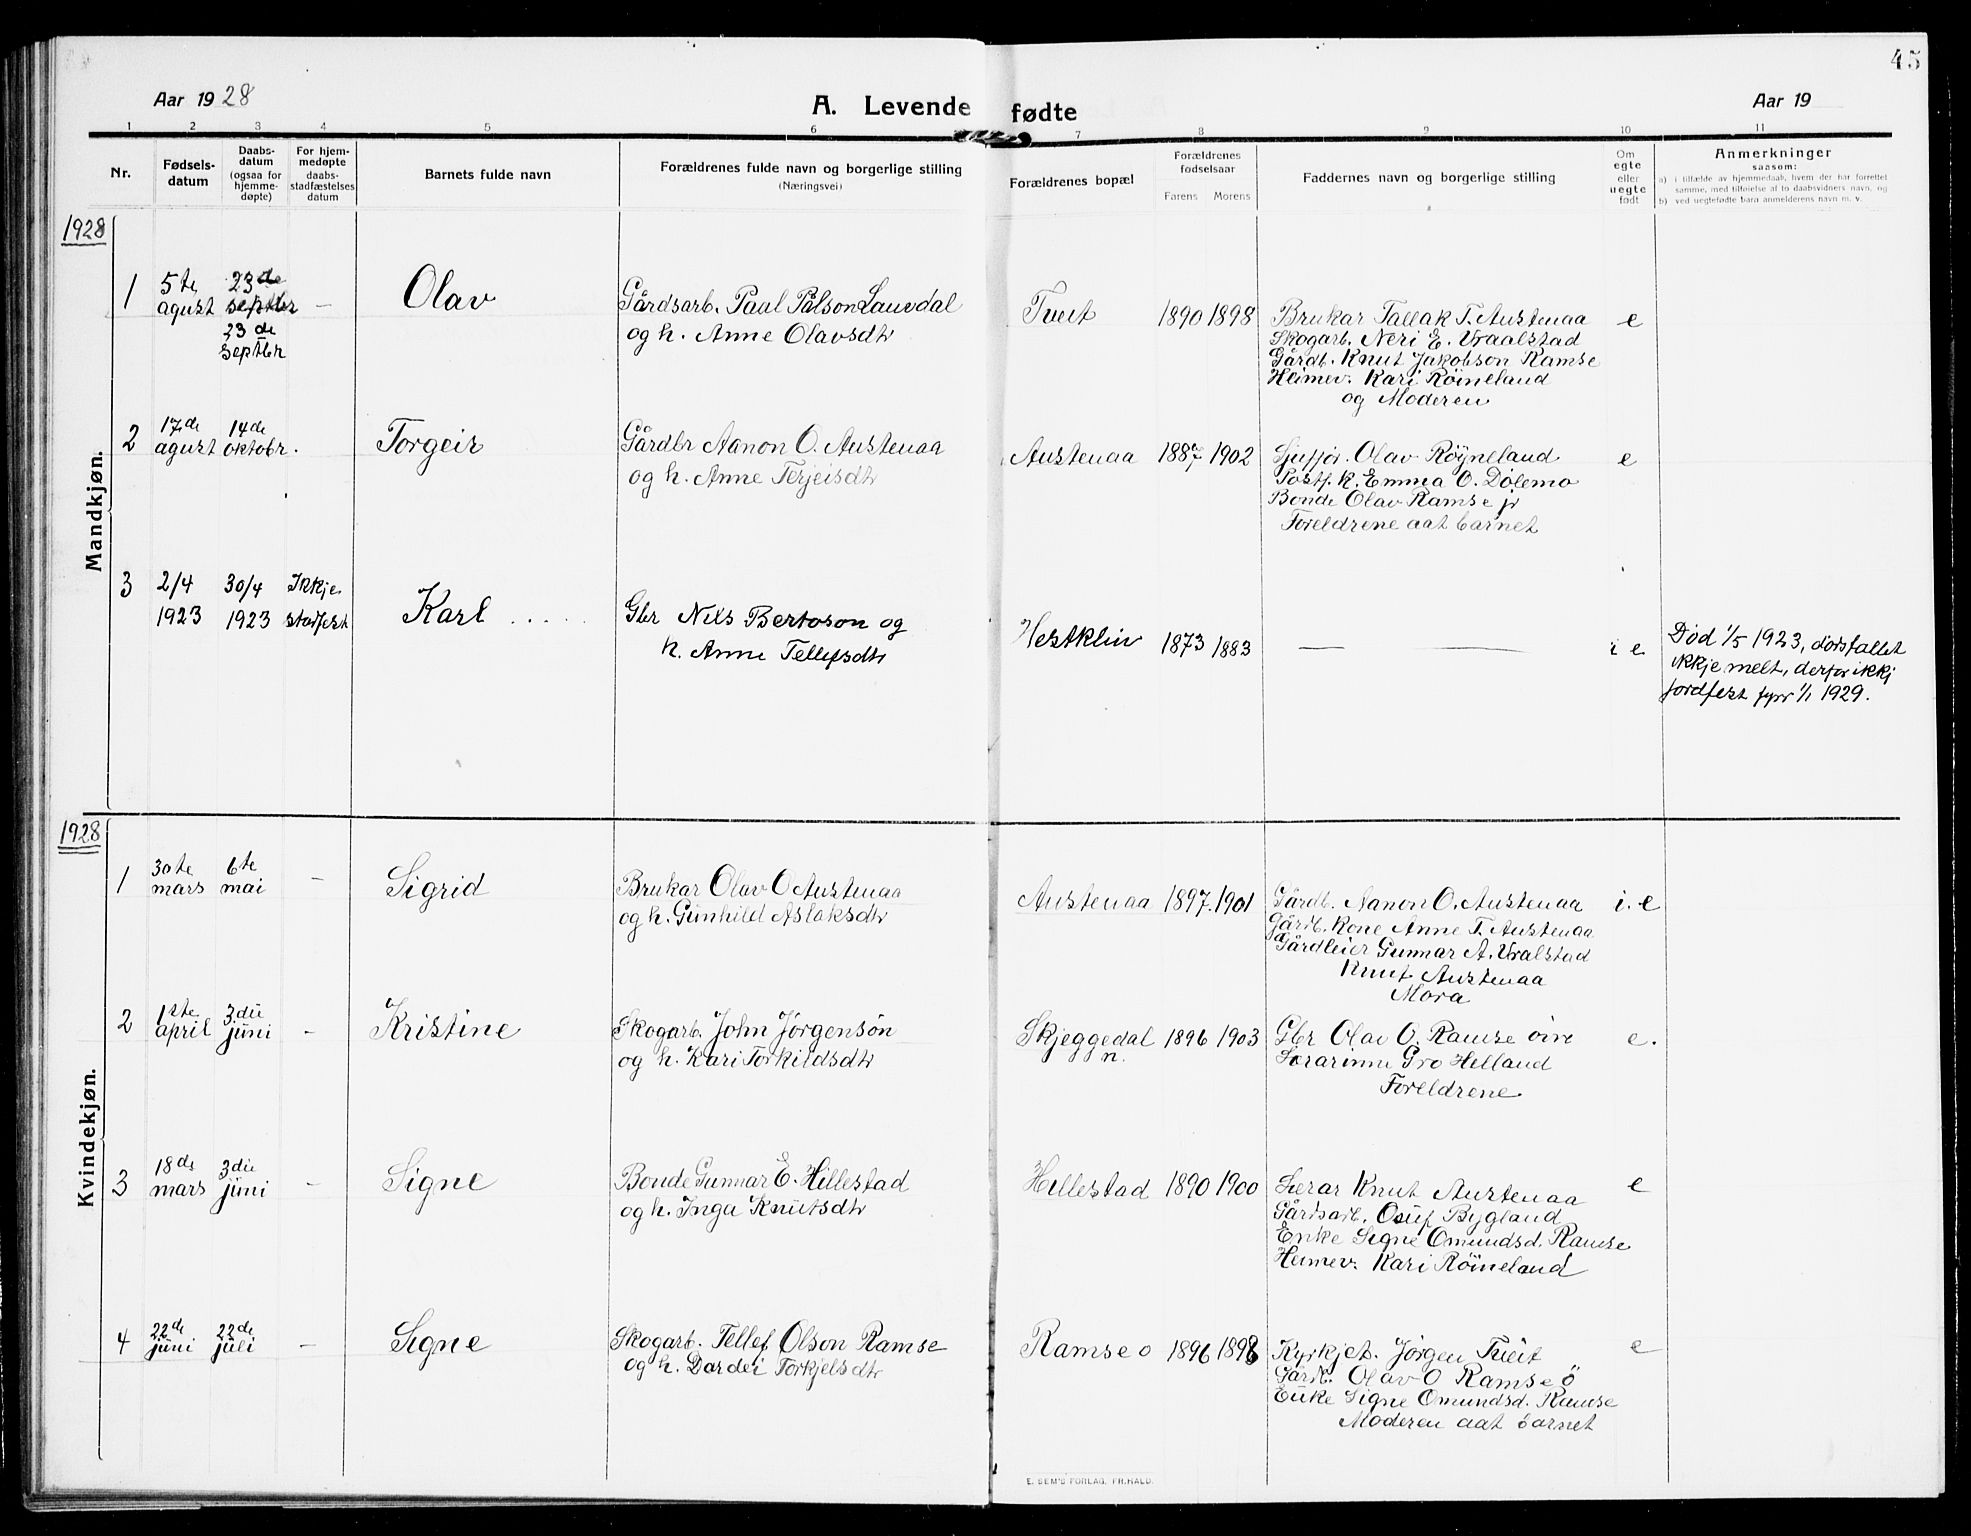 45
Aar 1928
A. Levende fødte
Aar 19
1 2 3 4 5 6 7 8 9 10 11
Nr.
Fødsels-
datum
Daabs-
datum
(ogsaa for
hjemme-
døpte)
For hjem-
medøpte
daabs-
stadfæstelses
datum
Barnets fulde navn
Forældrenes fulde navn og borgerlige stilling
(Næringsvei)
Forældrenes bopæl
Forældrenes
fødselsaar
Farens Morens
Faddernes navn og borgerlige stilling
Om
egte
eller
uegte
født
Anmerkninger
saasom:
a) i tilfælde av hjemmedaab, hvem der har forrettet
samme, med tilføielse af to daabsvidners navn, og
b) ved uegtefødte barn anmelderens navn m. v.
1928
Mandkjøn.
1
5te
agust
23de
septbr
23de
septbr
—
Olav
Gårdsarb. Paal Pålson Lauvdal
og h. Anne Olavsdtr
Tveit
1890 1898
Brukar Tallak T. Austenaa
Skogarb. Neri E. Vraalstad
Gårdb. Knut Jakobson Ramse
Heimev. Kari Røineland
og Moderen
e
2
17de
agust
14de
oktobr.
Torgeir
Gårdbr Aanon O. Austenaa
og h. Anne Terjeisdtr
Austenaa
1887 1902
Sjufjør. Olav Røyneland
Postf. k. Emma O. Dølemo
Bonde Olav Ramse jr
Foreldrene aat barnet
e
3
2/4
1923
30/4
1923
Ikkje
stadfest
Karl . . . . .
Gbr Nils Bertoson og
h. Anne Tellefsdtr
Hestkleiv
1873 1883
— —
i e
Död 1/5 1923, dørsfallet
ikkje melt, derfor ikkj
jordfest fyrr 1/1 1929.
1928
Kvindekjøn.
1
30te
mars
6te
mai
—
Sigrid
Brukar Olav O Austenaa
og h. Gunhild Aslaksdtr
Austenaa
1897 1901
Gårdb. Aanon O. Austenaa
Gårdb. kone Anne T. Austenaa
Gårdleier Gunnar A. Vralstad
Knut Austenaa
Mora
i. e
2
1ste
april
3die
juni
—
Kristine
Skogarb. John Jørgensøn
og h. Kari Torkildsdtr
Skjeggedal
n.
1896 1903
Gbr Olav O. Ramse öire
Lærarinne Gro Helland
Foreldrene
e.
3
18de
mars
3die
juni
—
Signe
Bonde Gunnar E. Hillestad
og h. Inga Knutsdtr
Hillestad
1890 1900
Lærar Knut Austenaa
Gårdsarb. Osuf Bygland
Enke Signe Omundsd. Ramse
Heimev. Kari Röineland
e
4
22de
juni
22de
juli
—
Signe
Skogarb. Tellef Olson Ramse
og h. Dardei Torkjelsdtr
Ramse o
1896 1898
Kyrkjet. Jörgen Tveit
Gårdb. Olav O Ramse ö
Enke Signe Omundsd. Ramse
Moderen aat barnet
e
E. SEM'S FORLAG, FR.HALD.